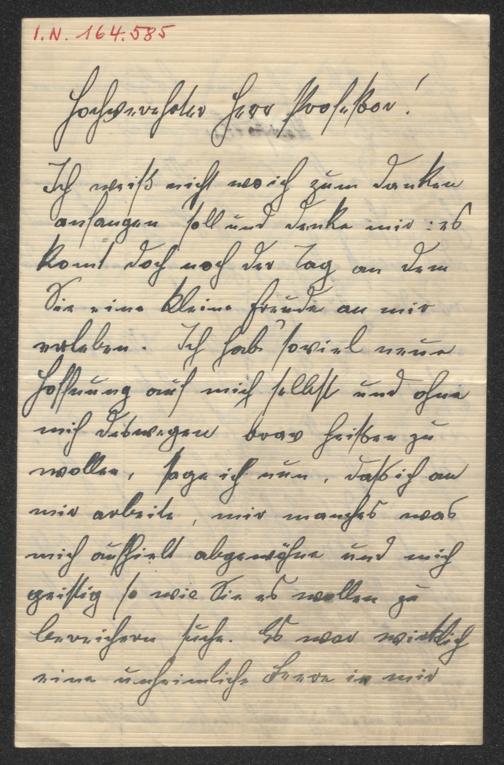 I.N. 164.585
Hochverehrter Herr Professor!
Ich weiß nicht wo ich zum danken
anfangen soll und denke mir: es
komt doch noch der Tag an dem
Sie eine kleine Freude an mir
erleben. Ich hab' soviel neue
Hoffnung auf mich selbst und ohne
mich deswegen brav heißen zu
wollen, sage ich nun, daß ich an
mir arbeite, mir manches was
mich aufhielt abgewöhne und mich
geistig so wie Sie es wollen zu
bereichern suche. Es war wirklich
eine unheimliche Leere in mir